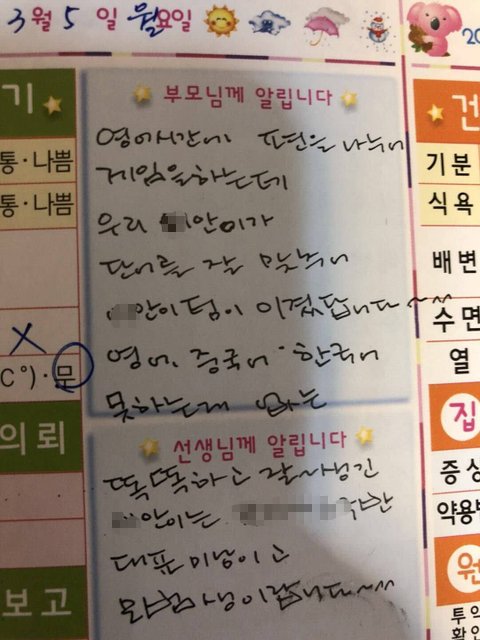 3월 5일 월요일
20
기
건
부모님께 알립니다
영어시간에 편을 나누어
통·나쁨
기분
게임을하는데
통·나쁨
식욕
우리 안이가
단어를 잘 맞춰
배변
안이팀이 이겼답니다~~~
수면
X
영어. 중국어·한국어
C°)·문
열
못하는게 없는
집
의뢰
선생님께 알립니다
증상
똑똑하고 잘생긴
약용법
안이는 반
대표 미남이고
원
모범생이랍니다~~~
보고
투약
확인